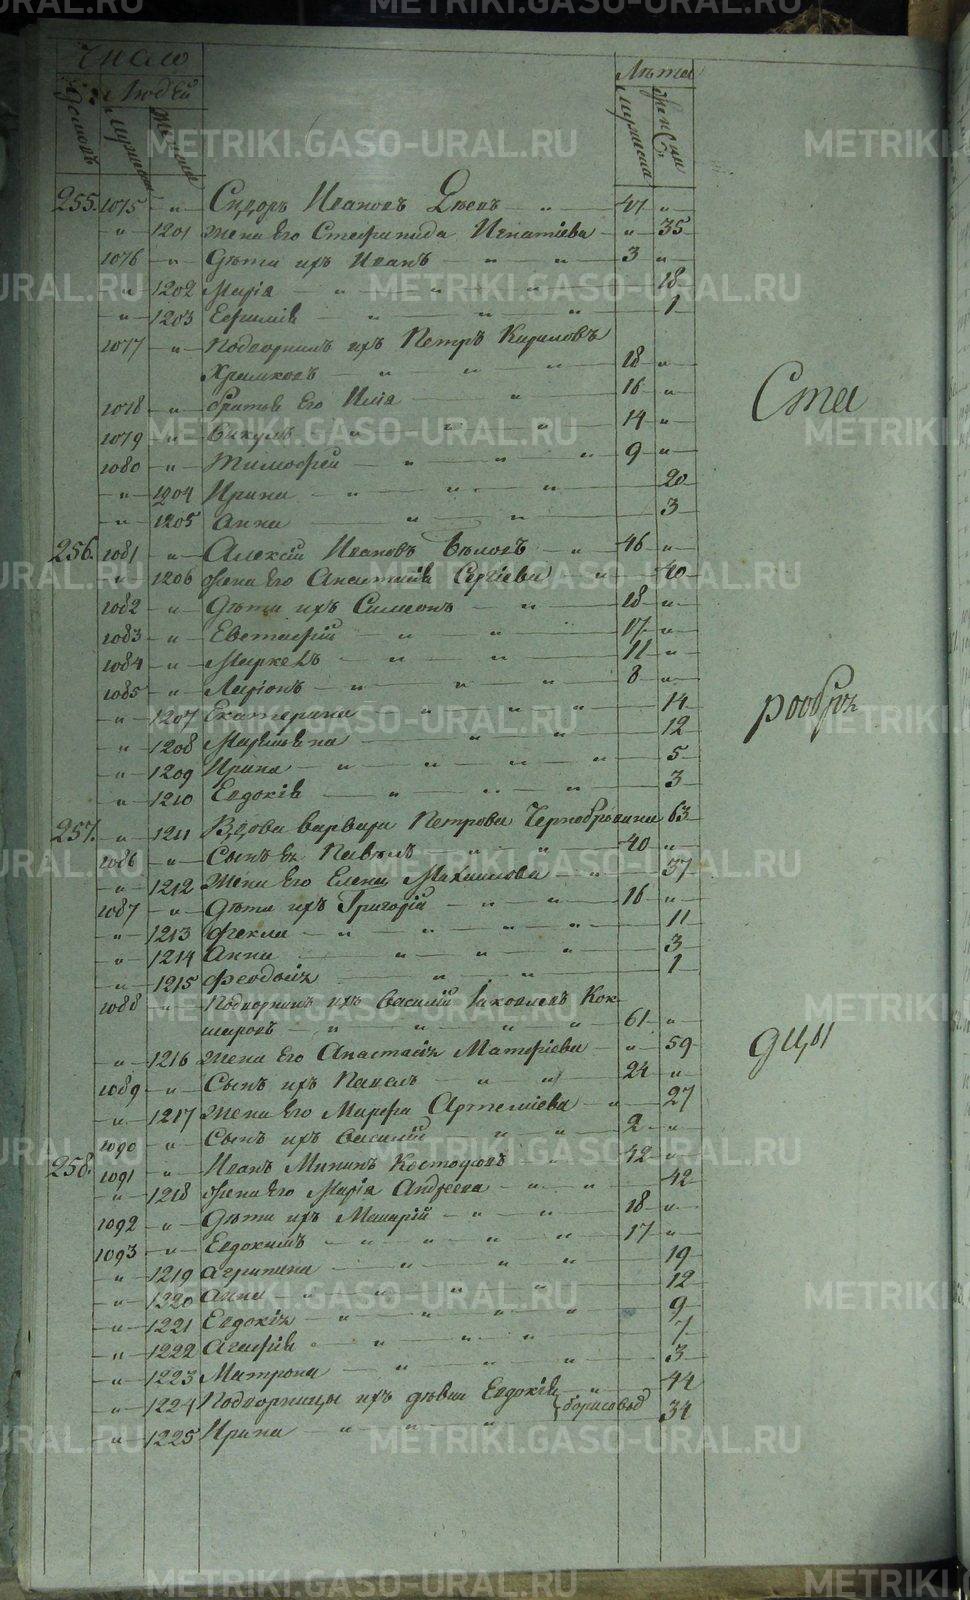 METRIKI.GASO-URAL.RU
Число Лѣта
домовъ Людей мужеска женска
мужеска женска
255. 1075 — „ Сидоръ Ивановъ — „ — 41 „
„ 1201 жена Его Стефанида Игнатіева — „ 35
1076 — „ Дѣти ихъ Иванъ — „ — „ — 3 „
„ 1202 Марія — „ — „ — „ 18
„ 1203 Ефимія — „ — „ — „ 1
1077 — „ Подворникъ ихъ Петръ Кириловъ
Храмковъ — „ — „ — „ 18 „
1078 — „ братья Его Илія — „ 16 „
1079 — „ Викулъ — „ — „ — „ 14 „
1080 — „ Тимофей — „ — „ — „ 9 „
„ 1204 Ирина — „ — „ — „ 20
„ 1205 Анна — „ — „ 3
256. 1081 — „ Алексій Ивановъ Бѣловъ — „ 46 „
„ 1206 жена Его Анастасія Сергіева — „ 40
1082 — „ Дѣти ихъ Симеонъ — „ 18 „
1083 — „ Евстафій — „ — „ 17 „
1084 — „ Маркелъ — „ — „ 11 „
1085 — „ Ларіонъ — „ — „ — „ 8 „
„ 1207 Екатерина — „ — „ — „ 14
„ 1208 Марьяна — „ — „ 12
„ 1209 Ирина — „ — „ — „ — „ 5
„ 1210 Евдокія — „ — „ — „ 3
257. „ 1211 Вдова Варвара Петрова Чернобровина 63
1086 — „ Сынъ Ея Павелъ — „ — „ 40 „
„ 1212 Жена Его Елена Михаилова — „ 37
1087 — „ Дѣти ихъ Григорій — „ — „ 16 „
„ 1213 Фекла — „ — „ — „ — „ 11
„ 1214 Анна — „ — „ — „ 3
„ 1215 Феодосія — „ — „ 1
1088 „ Подворникъ ихъ Василій Іаковлевъ Кок-
шаровъ — „ — „ — „ — „ 61 „
„ 1216 жена Его Анастасія Матфіева — „ 59
1089 — „ Сынъ ихъ Павелъ — „ — „ 24 „
„ 1217 жена Его Марфа Артемиева — „ 27
1090 — „ Сынъ ихъ Василій — „ — „ 2 „
258. 1091 — „ Иванъ Мининъ Костоусовъ — „ 42 „
„ 1218 жена Его Марія Андреева — „ — „ 42
1092 — „ Дѣти ихъ Макарій — „ — „ 18 „
1093 — „ Евдокимъ — „ — „ — „ — „ 17 „
„ 1219 Агрипина — „ — „ — „ 19
„ 1220 Анна „ — „ — „ — „ 12
„ 1221 Евдокія — „ — „ — „ — „ 9
„ 1222 Агафія — „ — „ — „ 7
„ 1223 Матрона — „ — „ — „ 3
„ 1224 Подворницы ихъ дѣвки Евдокія „ 44
„ 1225 Ирина — „ — „ — „ 34
Ста
рообря
дцы